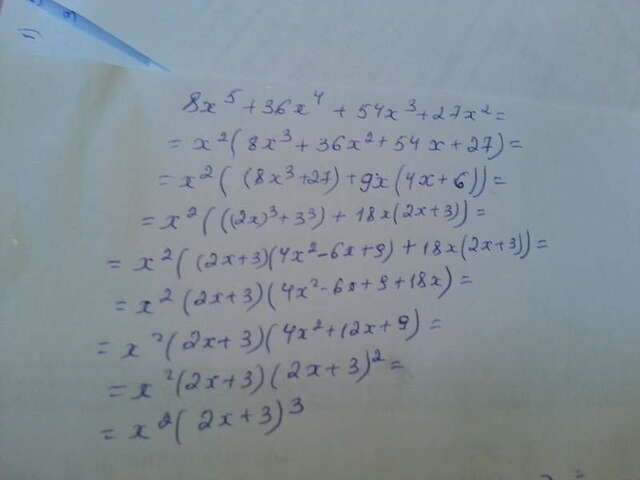 8x⁵ + 36x⁴ + 54x³ + 27x² =
= x²(8x³ + 36x² + 54x + 27) =
= x²((8x³ + 27) + 9x(4x + 6)) =
= x²(((2x)³ + 3³) + 18x(2x + 3)) =
= x²((2x + 3)(4x² - 6x + 9) + 18x(2x + 3)) =
= x²(2x + 3)(4x² - 6x + 9 + 18x) =
= x²(2x + 3)(4x² + 12x + 9) =
= x²(2x + 3)(2x + 3)² =
= x²(2x + 3)³